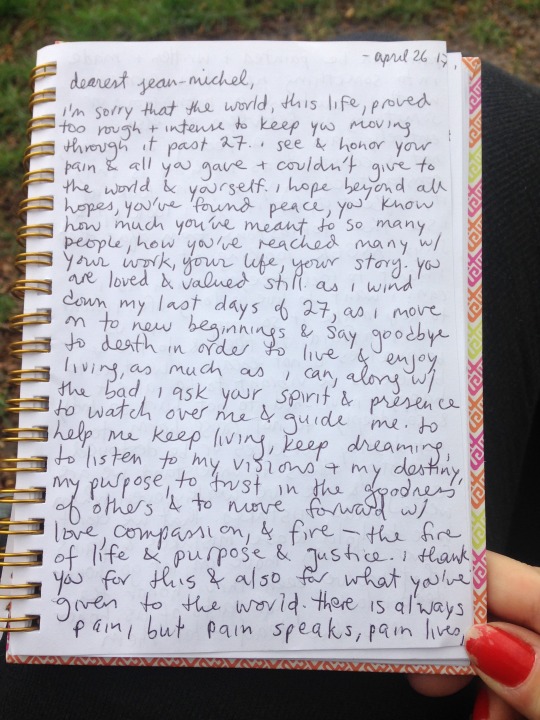 - april 26 17,
dearest jean-michel,
i'm sorry that the world, this life, proved
too rough + intense to keep you moving
through it past 27. i see & honor your
pain & all you gave + couldn't give to
the world & yourself. i hope beyond all
hopes, you've found peace, you know
how much you've meant to so many
people, how you've reached many w/
your work, your life, your story. you
are loved & valued still. as i wind
down my last days of 27, as i move
on to new beginnings & say goodbye
to death in order to live & enjoy
living, as much as i can, along w/
the bad i ask your spirit & presence
to watch over me & guide me. to
help me keep living, keep dreaming,
to listen to my visions + my destiny,
my purpose, to trust in the goodness
of others & to move forward w/
love, compassion, & fire — the fire
of life & purpose & justice. i thank
you for this & also for what you've
given to the world. there is always
pain, but pain speaks, pain lives,